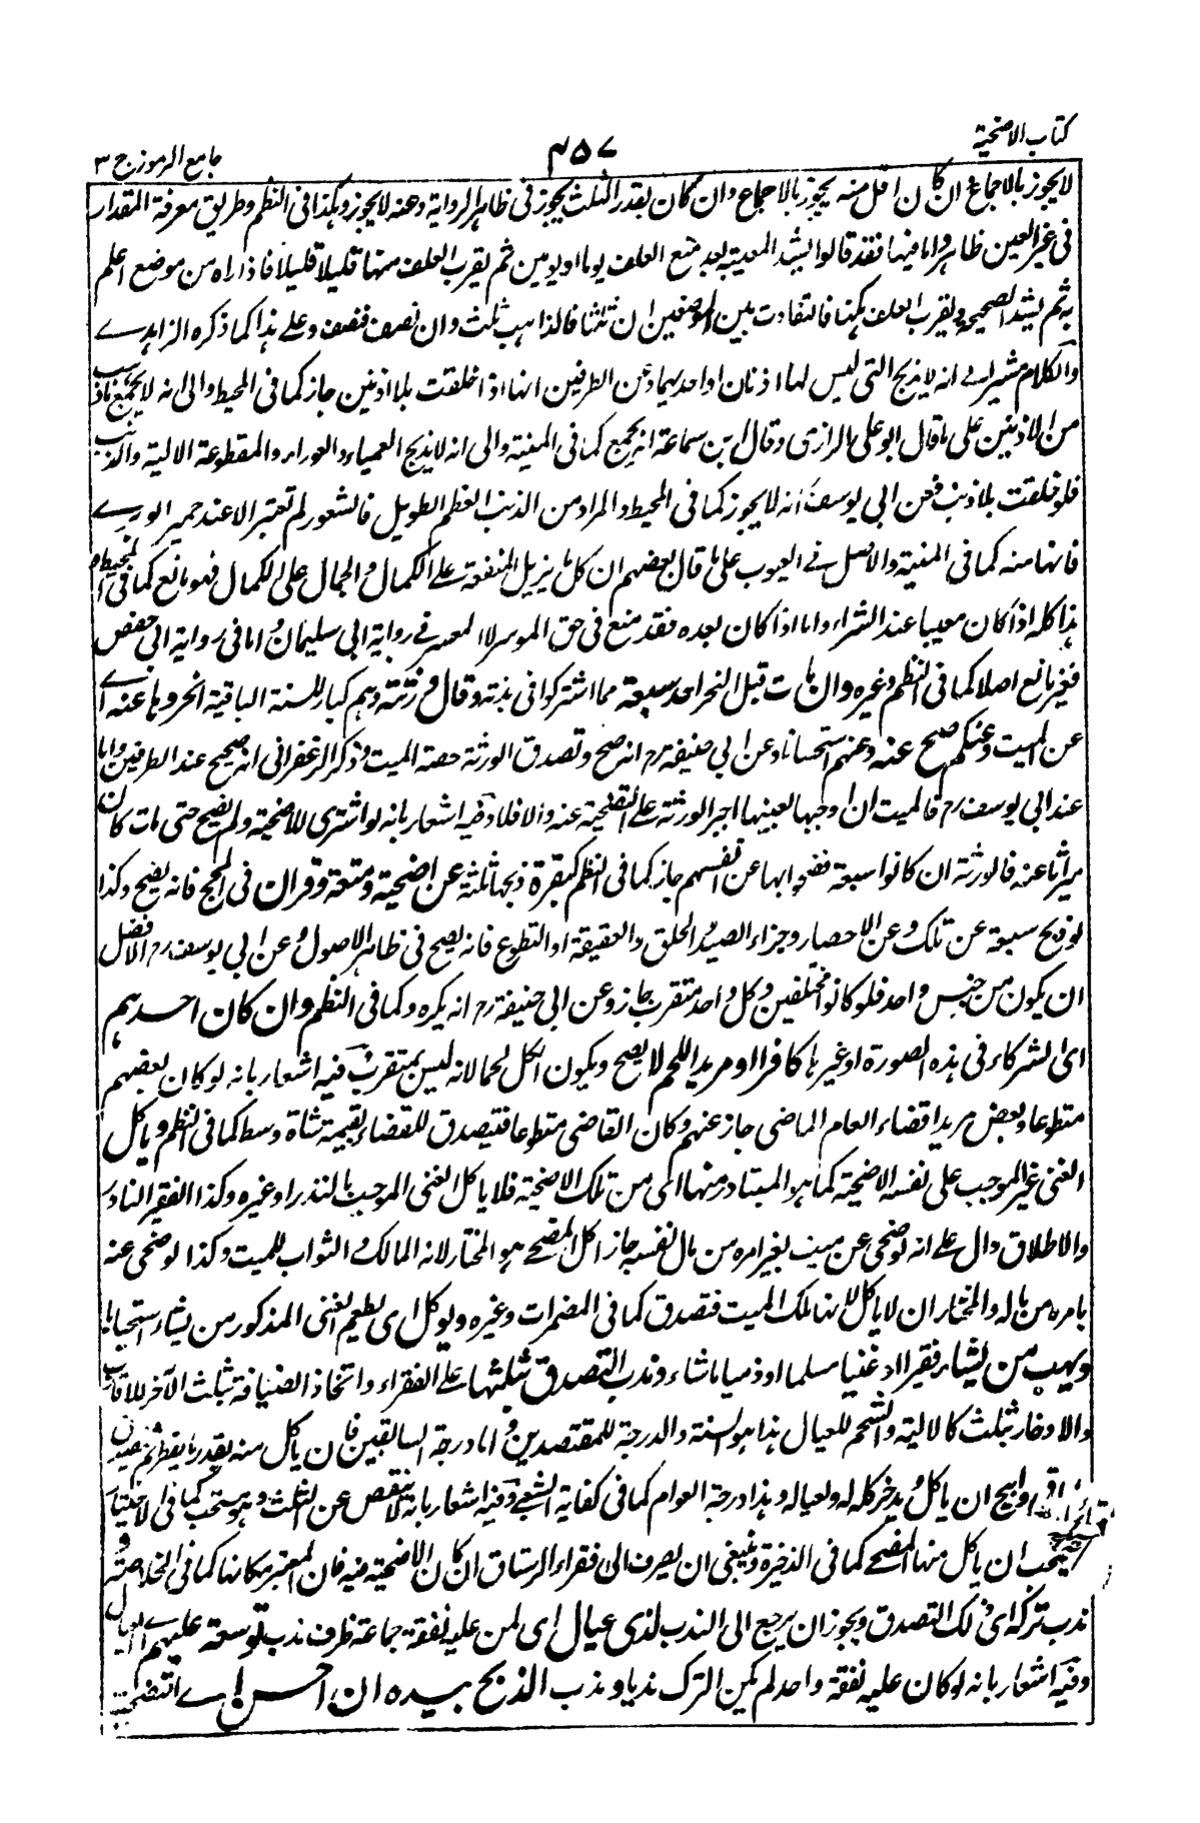 كتاب الاضحية
٣٥٧
جامع الرموز ج ٣
لا يجوز بالاجماع وان كان اقل منه يجوز بالاجماع وان كان بقدر الثلث يجوز فى ظاهر الرواية وعنه لا يجوز وهكذا فى النظم وطريق معرفة المقدار
فى غير العين ظاهر واما فيها فقد قالوا يشد المعيبة بعد منع العلف يوما او يومين ثم يقرب العلف منها قليلا قليلا فاذا راه من موضع اعلم
به ثم يشد الصحيحة ويقرب العلف هكذا فالتفاوت بين الموضعين ان ثلثا فالذاهب ثلث وان نصف فنصف وعلى هذا كما ذكره الزاهدى
والكلام مشير الى انه لا يذبح التى ليس لها اذنان او احديهما وعن الطرفين انها اذا خلقت بلا اذنين جاز كما فى المحيط والى انه لا يجمع ذاهب
من الاذنين على ما قال ابو على الرازى وقال ابن سماعة انه يجمع كما فى المنية والى انه لا يذبح العمياء والعوراء والمقطوعة الالية والذنب
فلو خلقت بلا ذنب فعن ابى يوسف انه لا يجوز كما فى المحيط والمراد من الذنب العظم الطويل فالشعور لم تعتبر الا عند حمير الوبرى
فانها منه كما فى المنية والاصل فى العيوب على ما قال بعضهم ان كل ما يزيل المنفعة على الكمال والجمال على الكمال فهو مانع كما فى المحيط
هذا كله اذا كان معيبا عند الشراء واما اذا كان بعده فقد منع فى حق الموسر لا المعسر فى رواية ابى سليمان واما فى رواية ابى حفص
فغير مانع اصلا كما فى النظم وغيره وان مات قبل النحر احد سبعة مما اشتركوا فى بدنة وقال ورثته وهم كبار للستة الباقية انحروها عنه اى
عن الميت وعنكم صح عنه وعنهم استحسانا وعن ابى حنيفة رح انه صح وتصدق الورثة حصة الميت وذكر الزعفرانى انه صحيح عند الطرفين واما
عند ابى يوسف رح فالميت ان اوجبها بعينها اجبر الورثة على التضحية عنه والا فلا وفيه اشعار بانه لو اشترى للاضحية ولم يضح حتى مات كان
ميراثا عنه فالورثة ان كانوا سبعة فضحوا بها عن انفسهم جاز كما فى النظم كبقرة ذبحها ثلثة عن اضحية ومتعة وقران فى الحج فانه يصح وكذا
لو ذبح سبعة عن تلك وعن الاحصار وجزاء الصيد والحلق والعقيقة او التطوع فانه يصح فى ظاهر الاصول وعن ابى يوسف رح الافضل
ان يكون من جنس واحد فلو كانوا مختلفين وكل واحد متقرب جاز وعن ابى حنيفة رح انه يكره كما فى النظم وان كان احدهم
اى الشركاء فى هذه الصورة او غيرها كافرا او مريد اللحم لا يصح ويكون الكل لحما لانه ليس بمتقرب وفيه اشعار بانه لو كان بعضهم
متطوعا وبعض مريدا قضاء العام الماضى جاز عنهم وكان القاضى متطوعا فتيصدق للقضاء بقيمة شاة وسط كما فى النظم وياكل
الغنى غير الموجب على نفسه الاضحية كما هو المتبادر منها اى من تلك الاضحية فلا ياكل الغنى الموجب بالنذر او غيره وكذا الفقير الناذر
والاطلاق دال على انه لو ضحى عن ميت بغير امره من مال نفسه جاز اكل المضحى هو المختار لانه المالك والثواب للميت وكذا لو ضحى عنه
بامره من ماله والمختار ان لا ياكل لانها ملك الميت فتصدق كما فى المضمرات وغيره ويؤكل اى يطعم الغنى المذكور من يشاء استحبابا
ويهب من يشاء فقيرا او غنيا مسلما او ذميا ما شاء وندب التصدق بثلثها على الفقراء واتخاذ الضيافة بثلث الآخر للاقارب
والادخار بثلث كالالية والشحم للعيال هذا هو السنة والدرجة للمقتصدين واما درجة السابقين فان ياكل منه بقدر ما يفطر ثم
وابيح ان ياكل ويدخر كله له ولعياله وهذا درجة العوام كما فى كفاية الشعبى وفيه اشعار بانه لا ينتقص عن الثلث وهو مستحب كما فى الاختيار
يجب ان ياكل منها المضحى كما فى الذخيرة وينبغى ان يصرف الى فقراء الرستاق ان كان الاضحية فيه فان المعتبر مكانها كما فى الخلاصة و
ندب تركه اى ذلك التصدق ويجوز ان يرجع الى الندب لذى عيال اى لمن عليه نفقة جماعة ظرف ندب توسعة عليهم اى العيال
وفيه اشعار بانه لو كان عليه نفقة واحد لم يكن الترك ندبا وندب الذبح بيده ان احسن اى التضحية